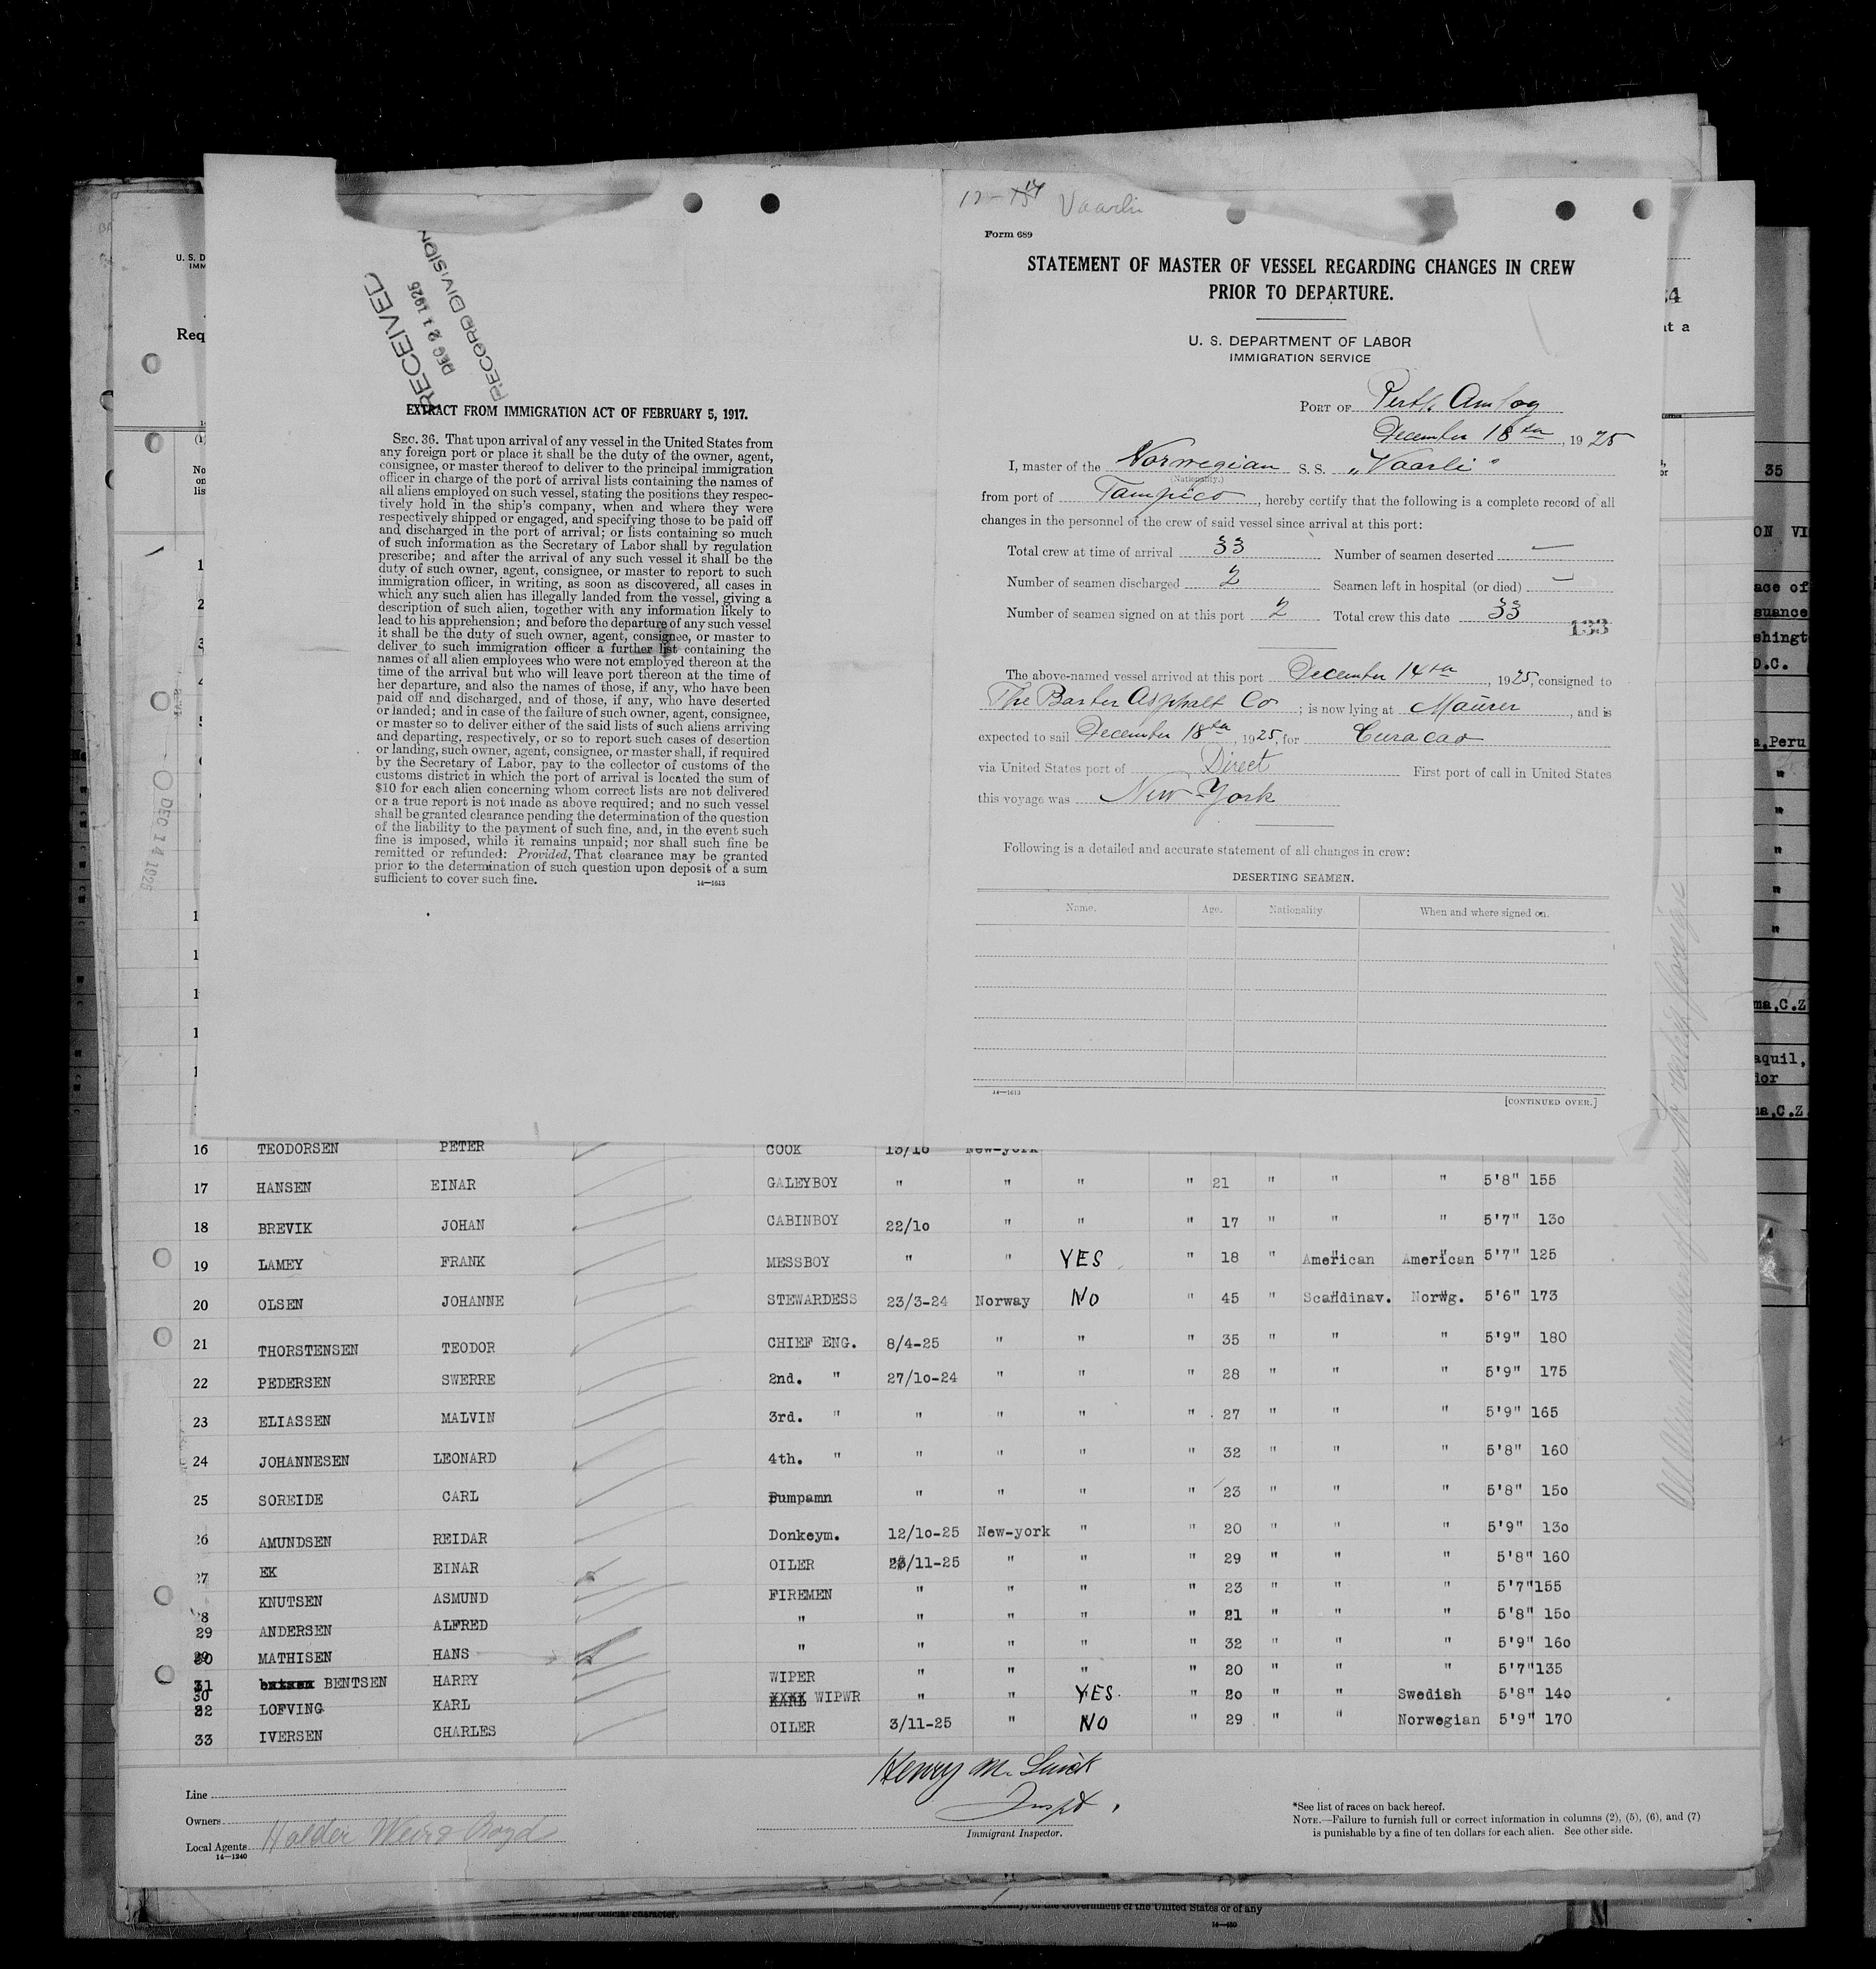 RECEIVED
DEC 21 1925
RECORD DIVISION
EXTRACT FROM IMMIGRATION ACT OF FEBRUARY 5, 1917.
SEC. 36. That upon arrival of any vessel in the United States from
any foreign port or place it shall be the duty of the owner, agent,
consignee, or master thereof to deliver to the principal immigration
officer in charge of the port of arrival lists containing the names of
all aliens employed on such vessel, stating the positions they respec-
tively hold in the ship's company, when and where they were
respectively shipped or engaged, and specifying those to be paid off
and discharged in the port of arrival; or lists containing so much
of such information as the Secretary of Labor shall by regulation
prescribe; and after the arrival of any such vessel it shall be the
duty of such owner, agent, consignee, or master to report to such
immigration officer, in writing, as soon as discovered, all cases in
which any such alien has illegally landed from the vessel, giving a
description of such alien, together with any information likely to
lead to his apprehension; and before the departure of any such vessel
it shall be the duty of such owner, agent, consignee, or master to
deliver to such immigration officer a further list containing the
names of all alien employees who were not employed thereon at the
time of the arrival but who will leave port thereon at the time of
her departure, and also the names of those, if any, who have been
paid off and discharged, and of those, if any, who have deserted
or landed; and in case of the failure of such owner, agent, consignee,
or master so to deliver either of the said lists of such aliens arriving
and departing, respectively, or so to report such cases of desertion
or landing, such owner, agent, consignee, or master shall, if required
by the Secretary of Labor, pay to the collector of customs of the
customs district in which the port of arrival is located the sum of
$10 for each alien concerning whom correct lists are not delivered
or a true report is not made as above required; and no such vessel
shall be granted clearance pending the determination of the question
of the liability to the payment of such fine, and, in the event such
fine is imposed, while it remains unpaid; nor shall such fine be
remitted or refunded: Provided, That clearance may be granted
prior to the determination of such question upon deposit of a sum
sufficient to cover such fine.
14—1613
Vaarli
Form 689
STATEMENT OF MASTER OF VESSEL REGARDING CHANGES IN CREW
PRIOR TO DEPARTURE.
U. S. DEPARTMENT OF LABOR
IMMIGRATION SERVICE
PORT OF Perth Amboy
December 18th, 1925
I, master of the Norwegian S. S. "Vaarli"
(Nationality.)
from port of Tampico, hereby certify that the following is a complete record of all
changes in the personnel of the crew of said vessel since arrival at this port:
Total crew at time of arrival 33 Number of seamen deserted —
Number of seamen discharged 2 Seamen left in hospital (or died) —
Number of seamen signed on at this port 2 Total crew this date 33
133
The above-named vessel arrived at this port December 14th, 1925, consigned to
The Barber Asphalt Co; is now lying at Maurer, and is
expected to sail December 18th, 1925, for Curacao
via United States port of Direct First port of call in United States
this voyage was New York
Following is a detailed and accurate statement of all changes in crew:
DESERTING SEAMEN.
Name. Age. Nationality. When and where signed on.
14—1613
[CONTINUED OVER.]
DEC 14 1925
16 TEODORSEN PETER COOK 13/10 New-york
17 HANSEN EINAR GALEYBOY " " " " 21 " " " 5'8" 155
18 BREVIK JOHAN CABINBOY 22/10 " " " 17 " " " 5'7" 130
19 LAMEY FRANK MESSBOY " " YES " 18 " American American 5'7" 125
20 OLSEN JOHANNE STEWARDESS 23/3-24 Norway NO " 45 " Scandinav. Norwg. 5'6" 173
21 THORSTENSEN TEODOR CHIEF ENG. 8/4-25 " " " 35 " " " 5'9" 180
22 PEDERSEN SWERRE 2nd. " 27/10-24 " " " 28 " " " 5'9" 175
23 ELIASSEN MALVIN 3rd. " " " " " 27 " " " 5'9" 165
24 JOHANNESEN LEONARD 4th. " " " " " 32 " " " 5'8" 160
25 SOREIDE CARL Pumpamn " " " " 23 " " " 5'8" 150
26 AMUNDSEN REIDAR Donkeym. 12/10-25 New-york " " 20 " " " 5'9" 130
27 EK EINAR OILER 23/11-25 " " " 29 " " " 5'8" 160
28 KNUTSEN ASMUND FIREMEN " " " " 23 " " " 5'7" 155
29 ANDERSEN ALFRED " " " " " 21 " " " 5'8" 150
30 MATHISEN HANS " " " " " 32 " " " 5'9" 160
31 BENTSEN HARRY WIPER " " " " 20 " " " 5'7" 135
32 LOFVING KARL WIPWR " " YES " 20 " " Swedish 5'8" 140
33 IVERSEN CHARLES OILER 3/11-25 " NO " 29 " " Norwegian 5'9" 170
Line
Owners
Local Agents
14—1240
Henry M.
Inspt.
Immigrant Inspector.
*See list of races on back hereof.
NOTE.—Failure to furnish full or correct information in columns (2), (5), (6), and (7)
is punishable by a fine of ten dollars for each alien. See other side.